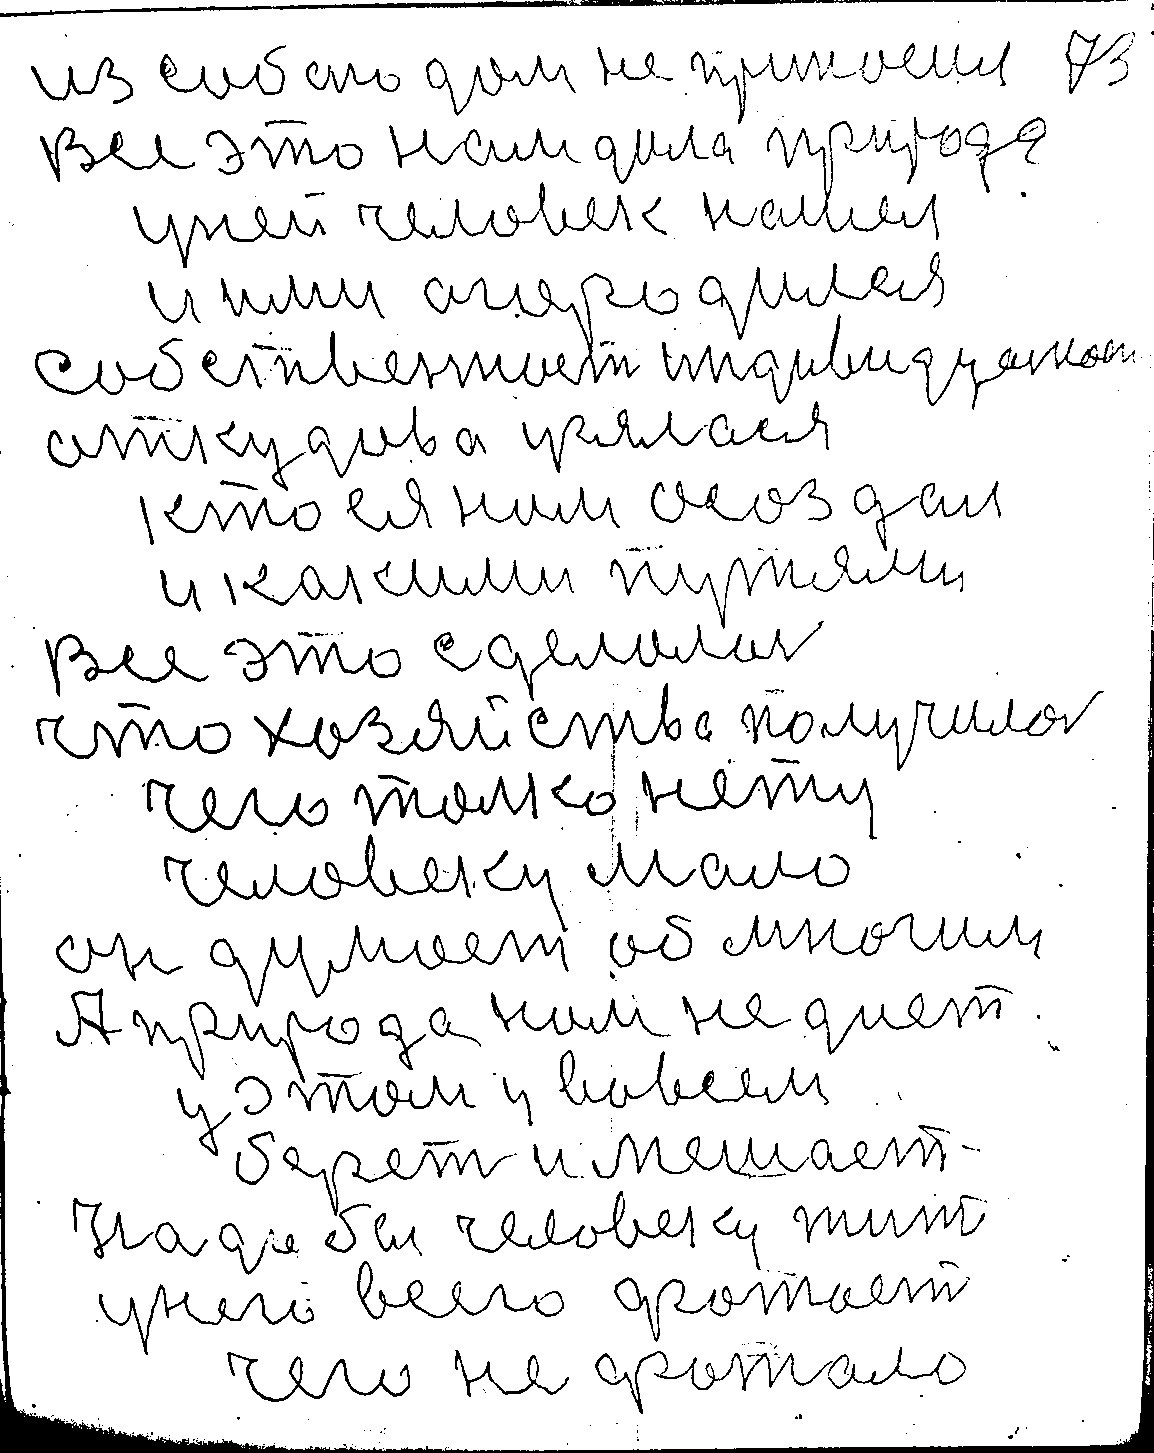 из собою дом не приносил 73
Все это нам дала природа
уней человек нашел
и ими огородился
собственност индивидуалност
откудоваузялася
ктося нам сосоздал
и какими путями
Все это сделалос
что хозяйства получилос
чего толко нету
человеку мало
он думает об многим
А природа нам не дает
уэтом у вовсем
берет и мешает
Надобы человеку жит
унего всего фотает
чего не фотало